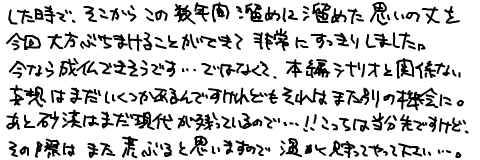 した時で、そこからこの数年間溜めに溜めた思いの丈を
今回大方ぶちまけることができて非常にすっきりしました。
今なら成仏できそうです…ではなくて、本編シナリオと関係ない
妄想はまだいくつかあるんですけれどもそれはまた別の機会に。
あと砂漠はまだ現代が残っているので…!!こっちは当分先ですけど、
その際はまた荒ぶると思いますので温かく見守ってやって下さい…。